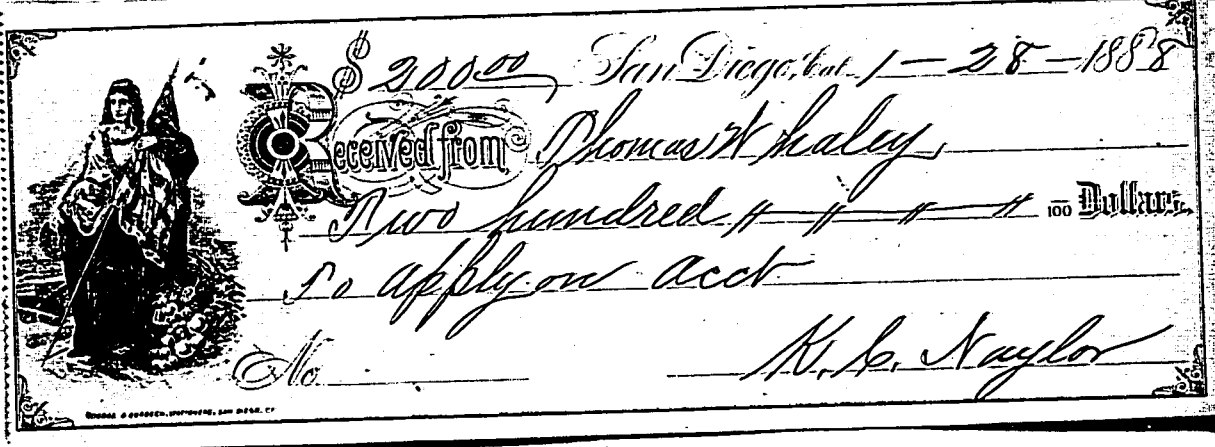 $ 200.00 San Diego, Cal. 1 - 28 - 1888
Received from Thomas Whaley,
Two hundred " " " " 100 Dollars,
To apply on acct
No. K. C. Naylor
SAN DIEGO, CA